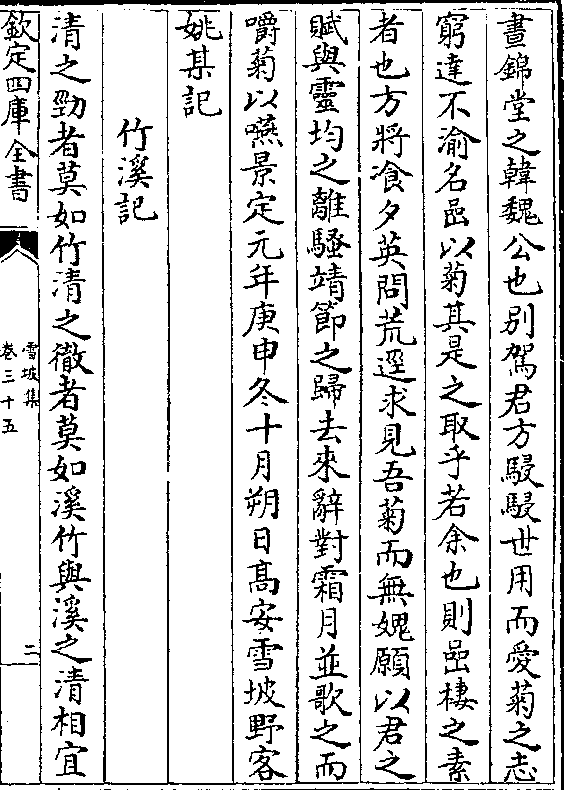 晝錦堂之韓魏公也别駕君方駸駸世用而愛菊之志
窮達不渝名嵒以菊其是之取乎若余也則嵒棲之素
者也方將飡夕英問荒逕求見吾菊而無媿願以君之
賦與靈均之離騷靖節之歸去來辭對霜月並歌之而
嚼菊以嚥景定元年庚申冬十月朔日髙安雪坡野客
姚某記
竹溪記
清之勁者莫如竹清之徹者莫如溪竹與溪之清相宜
欽定四庫全書
雪坡集
卷三十五
二